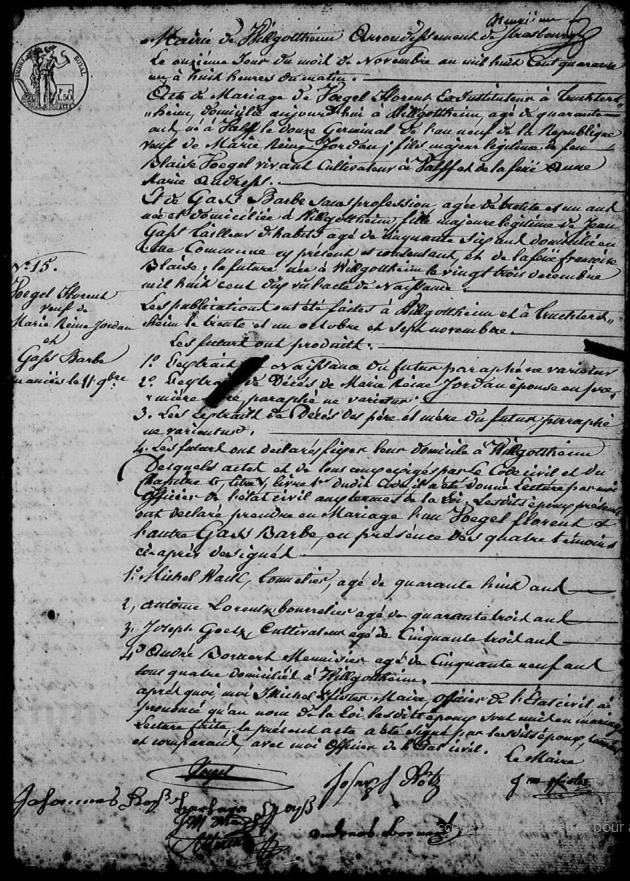 Mairie de Willgottheim Arrondissement de Strasbourg
Le onzieme Jour du mois de Novembre an mil huit Cent quarante
un à huit heures du matin.
Acte de Mariage de Foegel Florent Ex Instituteur à Truchters„
„heim, domicilié aujourd'hui à Willgottheim, agé de quarante
ans né à Valff le douze Germinal de l'an neuf de la Republique
veuf de Marie Reine Jordan; fils majeur légitime de feu
Blaise Foegel vivant Cultivateur à Valff et de la feüe Anne
Marie Andress.
Et de Gass Barbe sans profession, agée de trente et un ans
née et domiciliée à Willgottheim fille majeure légitime de Jean
Gass tailleur d'habits agé de cinquante six ans domicilié en
cette Commune cy présent et consentant, et de la feüe françoise
Blaise; la future née à Willgottheim le vingt trois decembre
mil huit cent dix vu l'acte de Naissance
Les publications ont été faites à Willgottheim et à Truchters„
heim le trente et un octobre et sept novembre.
Les futurs ont produits.
1.º L'extrait Naissance du futur paraphé ne varietur
2.º L'extrait de Décès de Marie Reine Jordan épouse en pre„
„mière paraphé ne varietur
3. Les Extraits de Décès des père et mère du futur paraphé
ne varientur
4. Les futurs ont declarés fixer leur domicile à Willgottheim
Desquels actes et de tous cinq exigés par le Code civil et du
chapitre titre livre 1er dudit Code, il a été donné Lecture par moi
officier de l'état civil aux termes de la Loi. Les dits époux présents
ont déclaré prendre en Mariage l'un Foegel florent et
l'autre Gass Barbe, en présence des quatre témoins
ci-après designés
1.º Michel Hauss, Tonnelier, agé de quarante huit ans
2, Antoine Lorentz bourrelier agé de quarante trois ans
3, Joseph Goetz Cultivateur agé de Cinquante trois ans
4º André Bornert Menuisier agé de Cinquante neuf ans
tous quatre domiciliés à Willgottheim.
après quoi, moi Michel Maire, officier de l'Etat civil, ai
prononcé qu'au nom de la Loi, les dits époux sont unis en mariage
Lecture faite, le présent acte a été signé par les dits époux, témoins
et comparans, avec moi officier de l'Etat civil.
Le Maire
Nº 15.
Foegel Florent
veuf de
Marie Reine Jordan
et
Gass Barbe
mariés le 11 9bre
Foegel
Joseph Götz
Johannes
Barbara Gass
Andreas Bornert